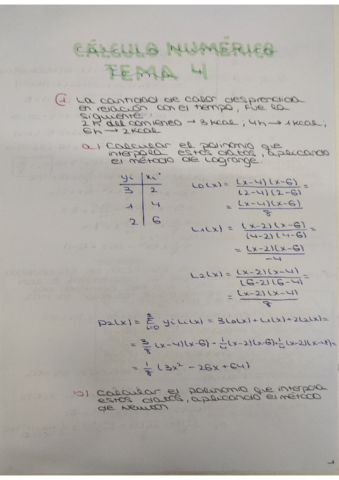 CÁLCULO NUMÉRICO
TEMA 4
① La cantidad de calor desprendida
en relación con el tiempo, fue la
siguiente:
2h del comienzo → 3 kcal; 4h → 1 kcal;
6h → 2 kcal
a) Calcular el polinomio que
interpola estos datos, aplicando
el método de Lagrange.
yi | xi
3 | 2
1 | 4
2 | 6
L0(x) = (x-4)(x-6) / (2-4)(2-6) =
= (x-4)(x-6) / 8
L1(x) = (x-2)(x-6) / (4-2)(4-6) =
= (x-2)(x-6) / -4
L2(x) = (x-2)(x-4) / (6-2)(6-4) =
= (x-2)(x-4) / 8
P2(x) = Σ yi Li(x) = 3L0(x) + L1(x) + 2L2(x) =
= 3/8 (x-4)(x-6) - 1/4 (x-2)(x-6) + 1/4 (x-2)(x-4) =
= 1/8 (3x² - 26x + 64)
b) Calcular el polinomio que interpola
estos datos, aplicando el método
de Newton